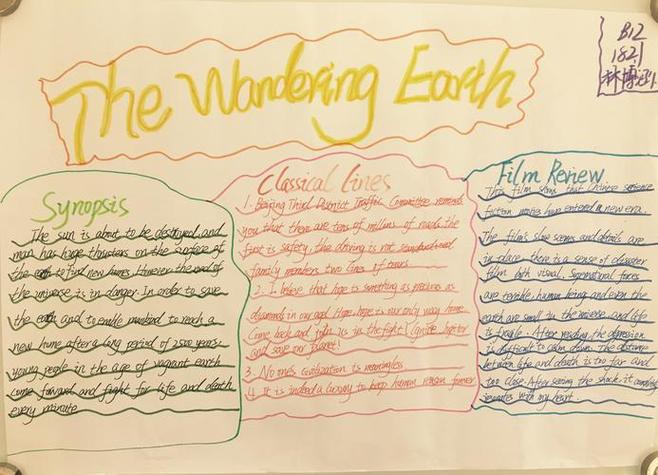 The Wandering Earth
B12
1821
林博
Synopsis
The sun is about to be destroyed, and
man has huge thrusters on the surface of
the earth to find new homes. However the road of
the universe is in danger. In order to save
the earth and to enable mankind to reach a
new home after a long period of 2500 years.
young people in the age of vagrant earth
come forward and fight for life and death
every minute
Classical Lines
1. Beijing Third District Traffic Committee reminds
you that there are tens of millions of roads, the
first is safety, the driving is not
family members two lines of tears
2. I believe that hope is something as precious as
diamond in our age. Hope, hope is our only way home.
Come back and join us in the fight! Ignite Jupiter
and save our planet!
3. No ones civilization is meaningless
4. It is indeed a luxury to keep human reason forever
Film Review
This film shows that Chinese science
fiction movies have entered a new era.
The film's slow scenes and details are
in place, there is a sense of disaster
film both visual. forces
are terrible, human being and even the
earth are small in the universe and life
is fragile. After reading, the depression
is difficult to calm down. The distance
between life and death is too far and
too close. After seeing the shock, it
resonates with my heart.